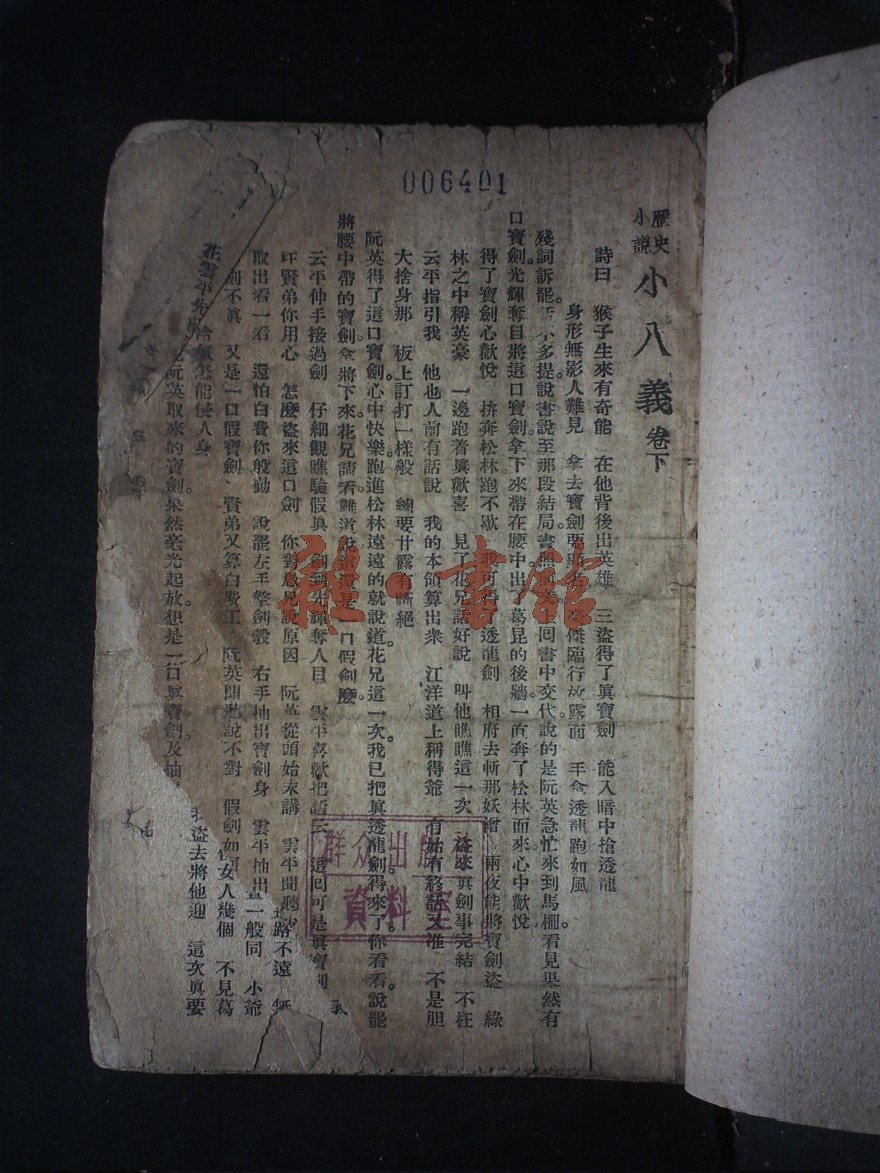 006401
歷史
小說
小八義 卷下
詩曰 猴子生來有奇能 在他背後出英雄 三盜得了眞寶劍 能入暗中搶透龍
身形無影人難見 拿去寶劍 傑臨行故露面 手拿透龍跑如風
殘詞訴罷 不多提說書說至那段結局書 回書中交代說的是阮英急忙來到馬棚看見果然有
口寶劍光輝奪目將這口寶劍拿下來帶在腰中出了葛昆的後牆一直奔了松林而來心中歡悅
得了寶劍心歡悅 拚奔松林跑不歇 透龍劍 相府去斬那妖僧 兩夜能將寶劍盜 綠
林之中稱英豪 一邊跑着眞歡喜 見了花兄話好說 叫他瞧瞧這一次 盜來眞劍事完結 不枉
云平指引我 他也人前有話說 我的本領算出衆 江洋道上稱得爺 有始有終 不是胆
大捨身那 板上訂打一樣般 總要甘露有斷絕
阮英得了這口寶劍心中快樂跑進松林遠遠的就說道花兄這一次我已把眞透龍劍得來了你看看說罷
將腰中帶的寶劍拿將下來花兄請看難道說這還是一口假劍麽
云平伸手接過劍 仔細觀瞧驗假眞 劍到光輝奪人目 雲平喜歡把話云 這回可是眞寶劍
賢弟你用心 怎麼盜來這口劍 你對愚兄說原因 阮英從頭始末講 雲平聞聽
路不遠
取出看一看 還怕白費你般勤 說罷左手擎劍殼 右手抽出寶劍身 雲平抽出 一般同 小爺
劍不眞 又是一口假寶劍 賢弟又算白費工 阮英聞聽說不對 假劍如何 女人幾個 不見葛
能侵人身 我盜去將他迎 這次眞要
阮英取來的寶劍果然毫光起放想是一口眞寶劍及抽
群众出版社
資料室
雜·書館